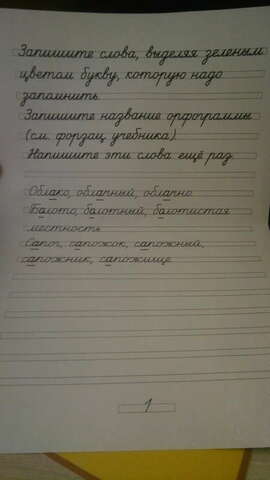 Запишите слова, выделяя зеленым
цветом букву, которую надо
запомнить.
Запишите название орфограммы
(см. форзац учебника)
Напишите эти слова ещё раз.
Облако, облачный, облачно.
Болото, болотный, болотистая
местность
Сапог, сапожок, сапожный,
сапожник, сапожище
1